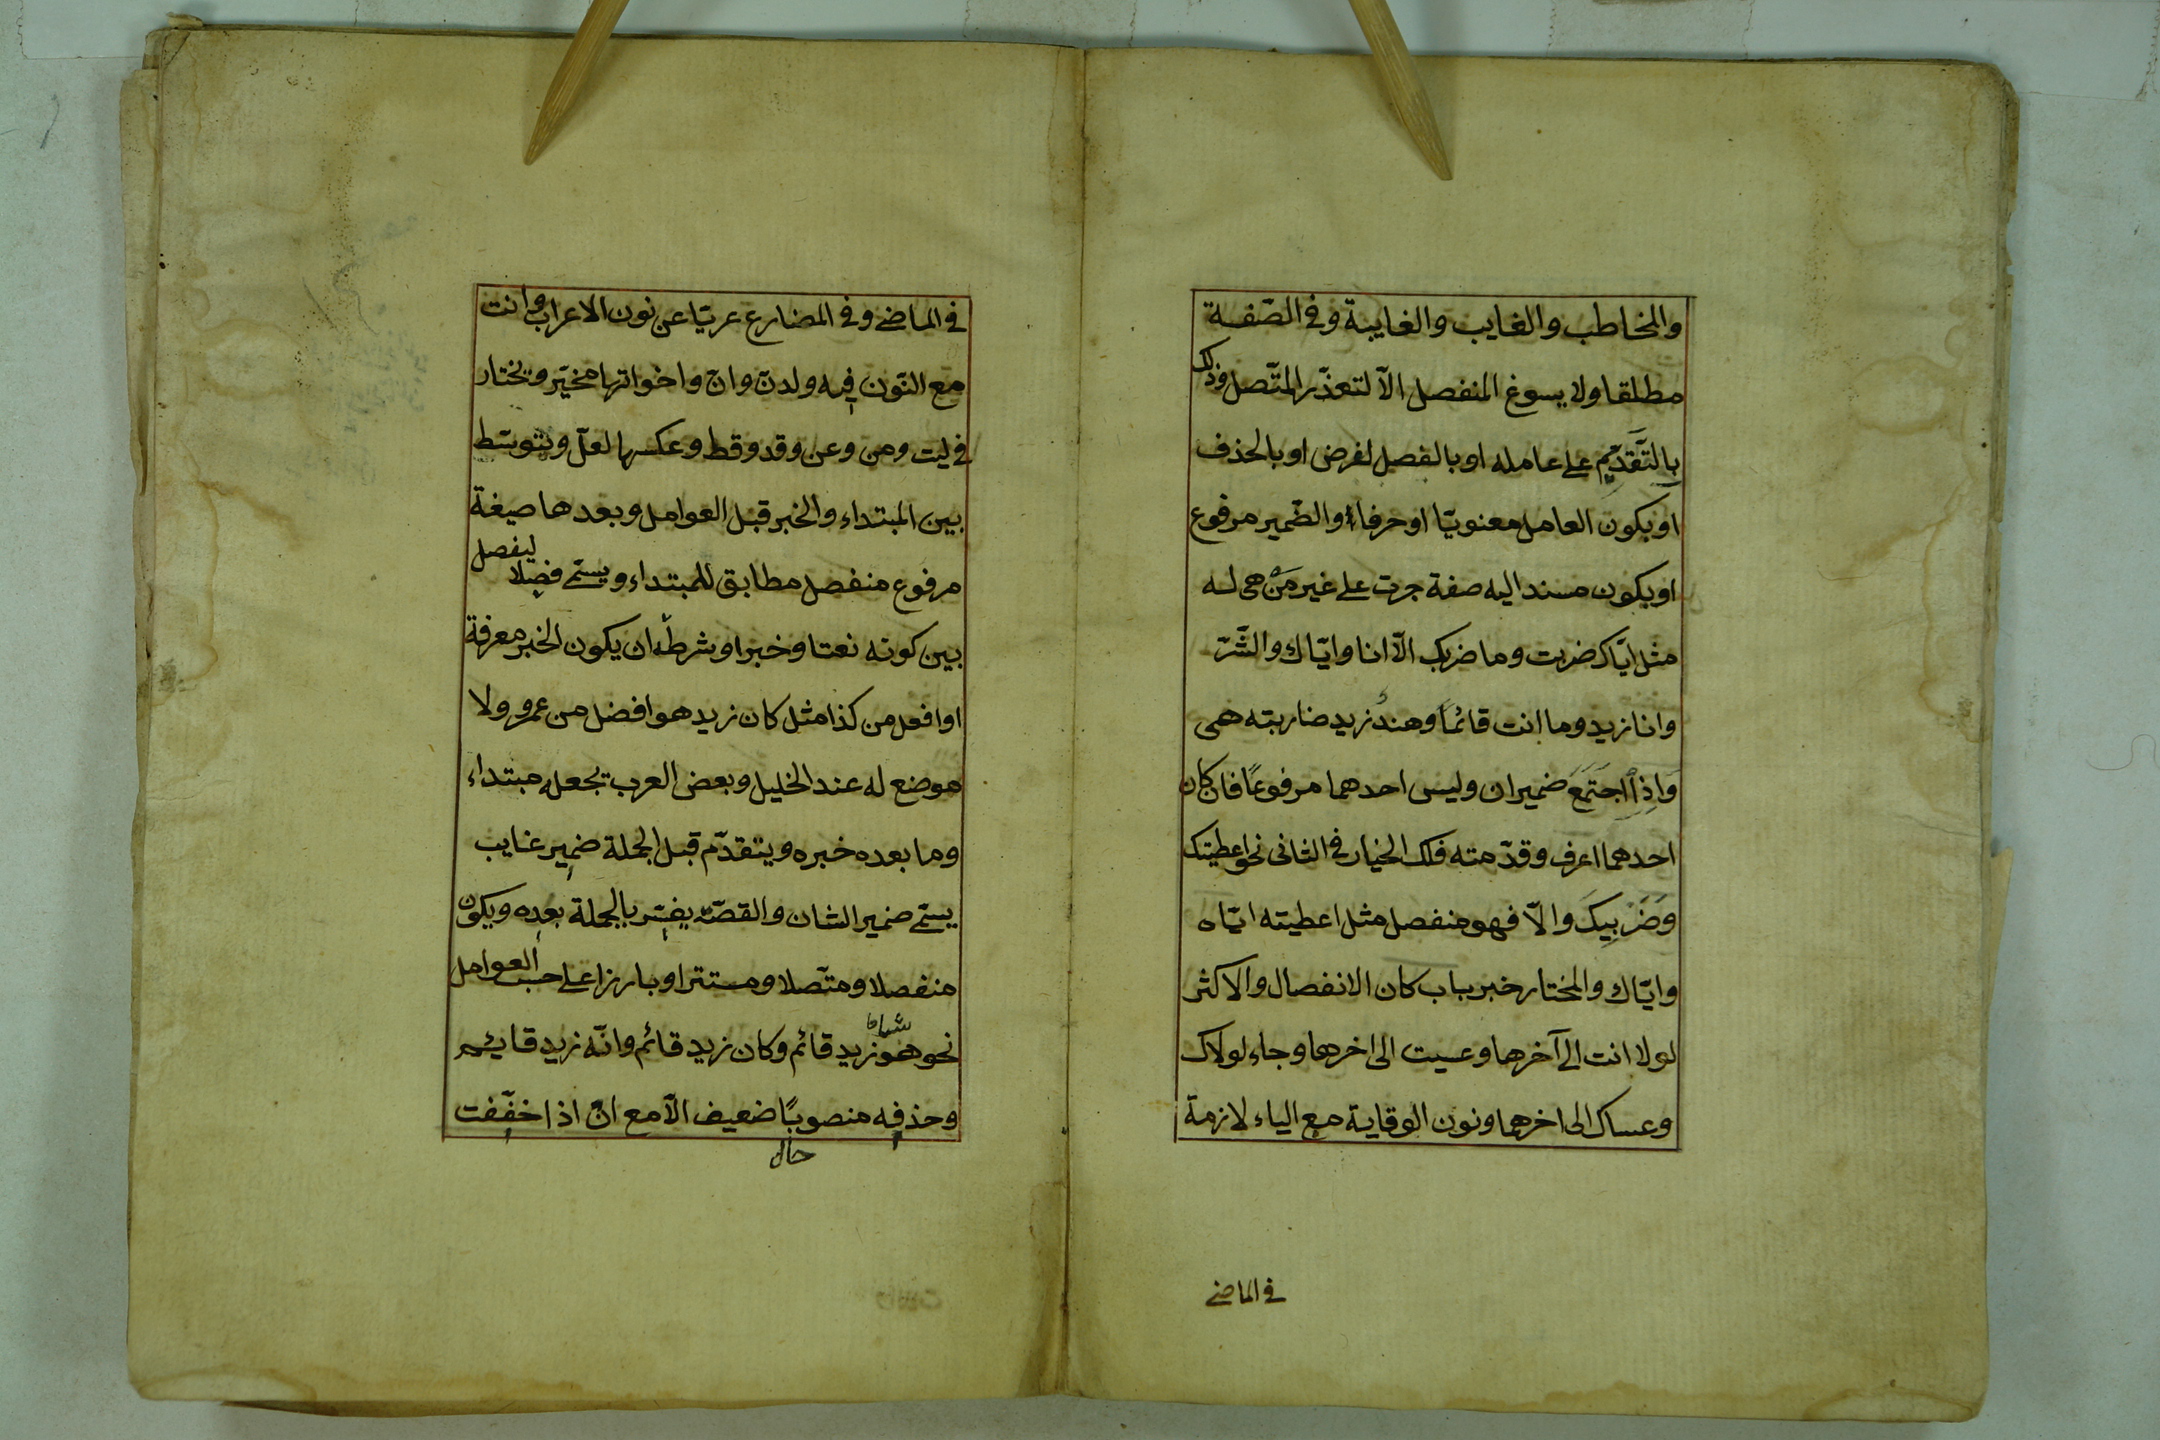 والمخاطب والغايب والغايبة وفى الصّفة
مطلقا ولا يسوغ المنفصل الّا لتعذّر المتّصل وذلك
بِالتَّقَدِيمِ على عامله او بالفصل لغرض او بالحذف
او بكون العامل معنويّا او حرفا والضّمير مرفوع
او بكون مسندا اليه صفة جرت على غير مَنْ هى له
مثل ايّاك ضربت وما ضربك الّا انا وايّاك والشَّرّ
وانا زيد وما انت قائمًا وهندٌ زيد ضاربته هى
وَاِذَا اجتَمَعَ ضميران وليس احدهما مرفوعًا فان كان
احدهما اعرف وقدّمته فلك الخيار فى الثانى نحو اعطيتك
وَضَرْبِيكَ والّا فهو منفصل مثل اعطيته ايّاه
وايّاك والمختار خبر باب كان الانفصال والاكثر
لولا انت الى آخرها وعسيت الى اخرها وجاء لولاك
وعساك الى اخرهما ونون الوقاية مع الياء لازمة
فى الماضى
فى الماضى وفى المضارع عريّا عن نون الاعراب وانت
مع النّون فيه ولدن وانّ واخواتها مخيّر ويختار
فى ليت ومن وعن وقد وقط وعكسها لعلّ ويتوسّط
بين المبتداء والخبر قبل العوامل وبعدها صيغة
مرفوع منفصل مطابق للمبتداء ويسمّى فصلا ليفصل
بين كونه نعتا وخبرا وشرطه ان يكون الخبر معرفة
او افعل من كذا مثل كان زيد هو افضل من عمرو ولا
موضع له عند الخليل وبعض العرب يجعله مبتداء
وما بعده خبره ويتقدّم قبل الجملة ضمير غايب
يسمّى ضمير الشان والقصّة يفسّر بالجملة بعده ويكون
منفصلا ومتّصلا ومستترا او بارزا على حسب العوامل
نحو هو زيد قائم وكان زيد قائم وانّه زيد قايم
وحذفه منصوبًا ضعيف الّا مع انّ اذا خفّفت
حال